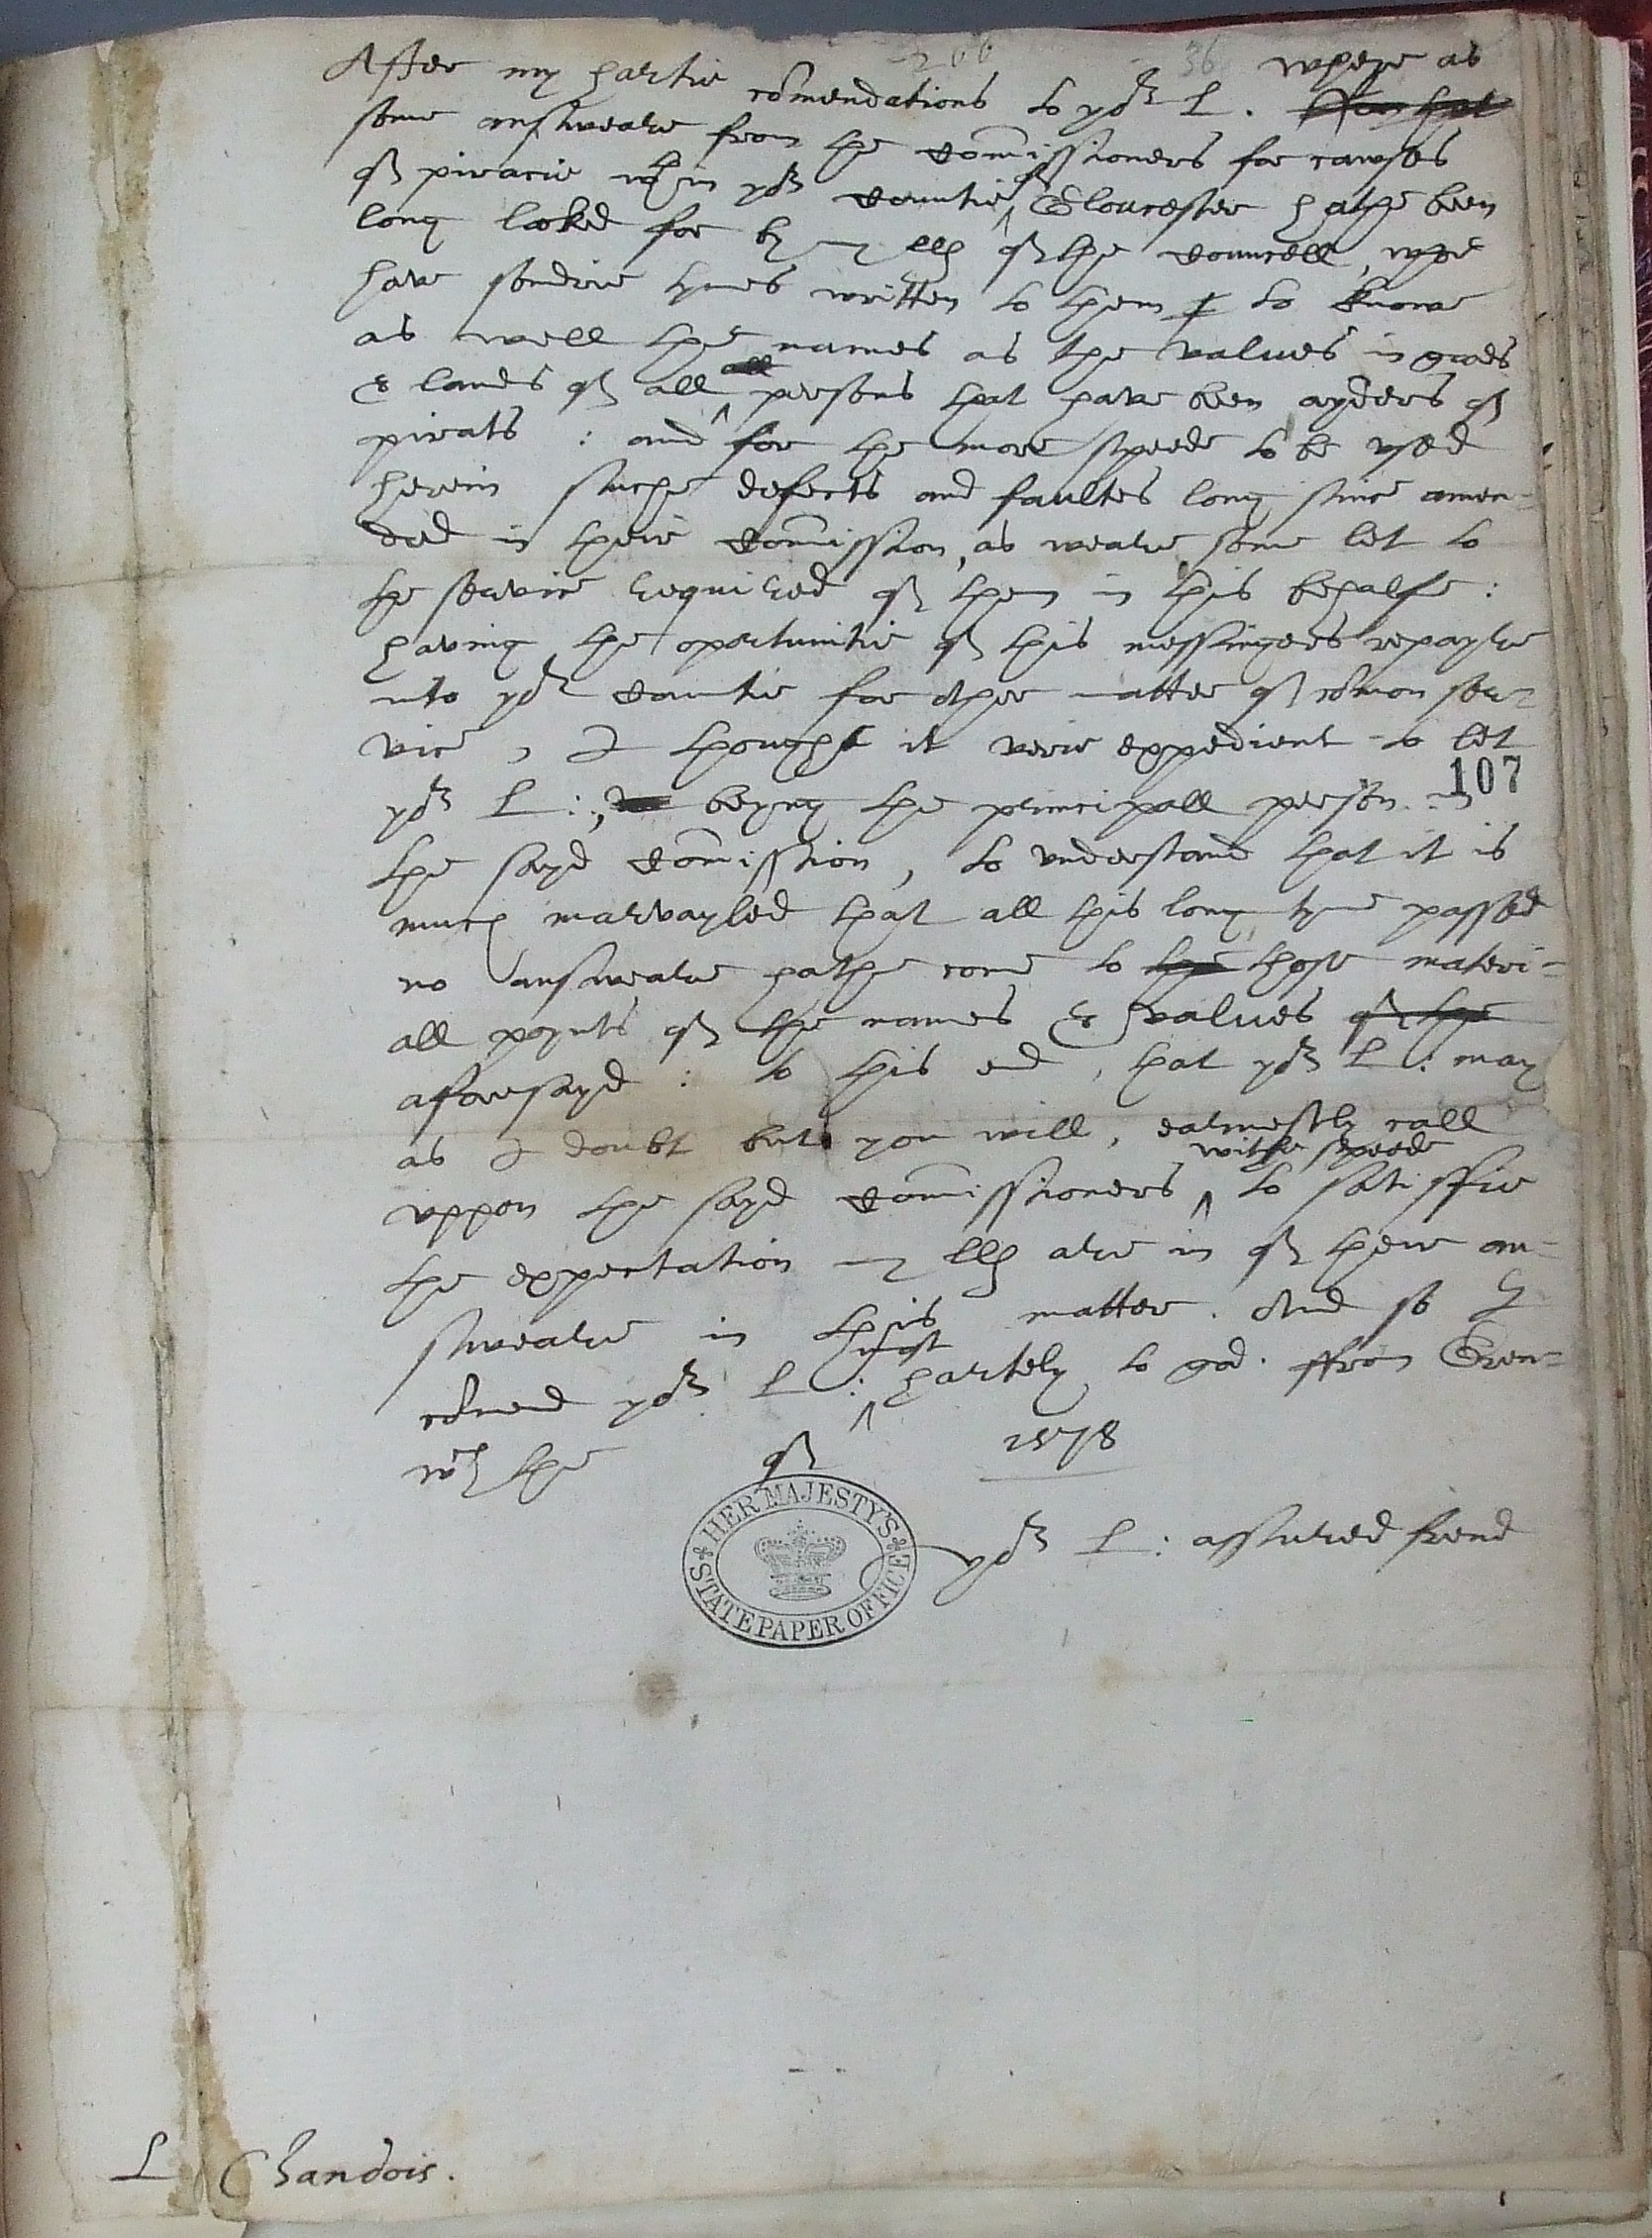 200 36
After my hartie comendations to yor L. where as
some answeare from the Comissioners for cawses
of piracie wthin yor Countie of Gloucester hathe been
long looked for by my LLs of the Councell, who
have sondrie tymes written to them to knowe
as well the names as the values in goods
& lands of all persons that have been ayders of
pirats : and for the more speede to be vsed
herein suche defects and faultes long since amen-
ded in their Comission, as weare some let to
the service required of them in this behalfe :
having the oportunitie of this messingers repayre
into yor Countie for other matter of comon ser-
vice, I thought it verie expedient to let
yor L :, beyng the principall person in
107
the sayd Comission, to vnderstand that it is
much marvayled that all this long tyme passed
no answeare hathe come to the those materi-
all poynts of the names & values of the
aforesayd : to this end, that yor L : may
as I doubt but you will, earnestly call
withe speede
vppon the sayd Comissioners ^ to satisffie
the expectation my LLs are in of their an-
sweare in this matter. And so I
most
comend yor L : ^ hartely to god. ffrom Gren-
wch the of 1578
yor L : assured frend
HER MAJESTY'S STATE PAPER OFFICE
L Chandois.